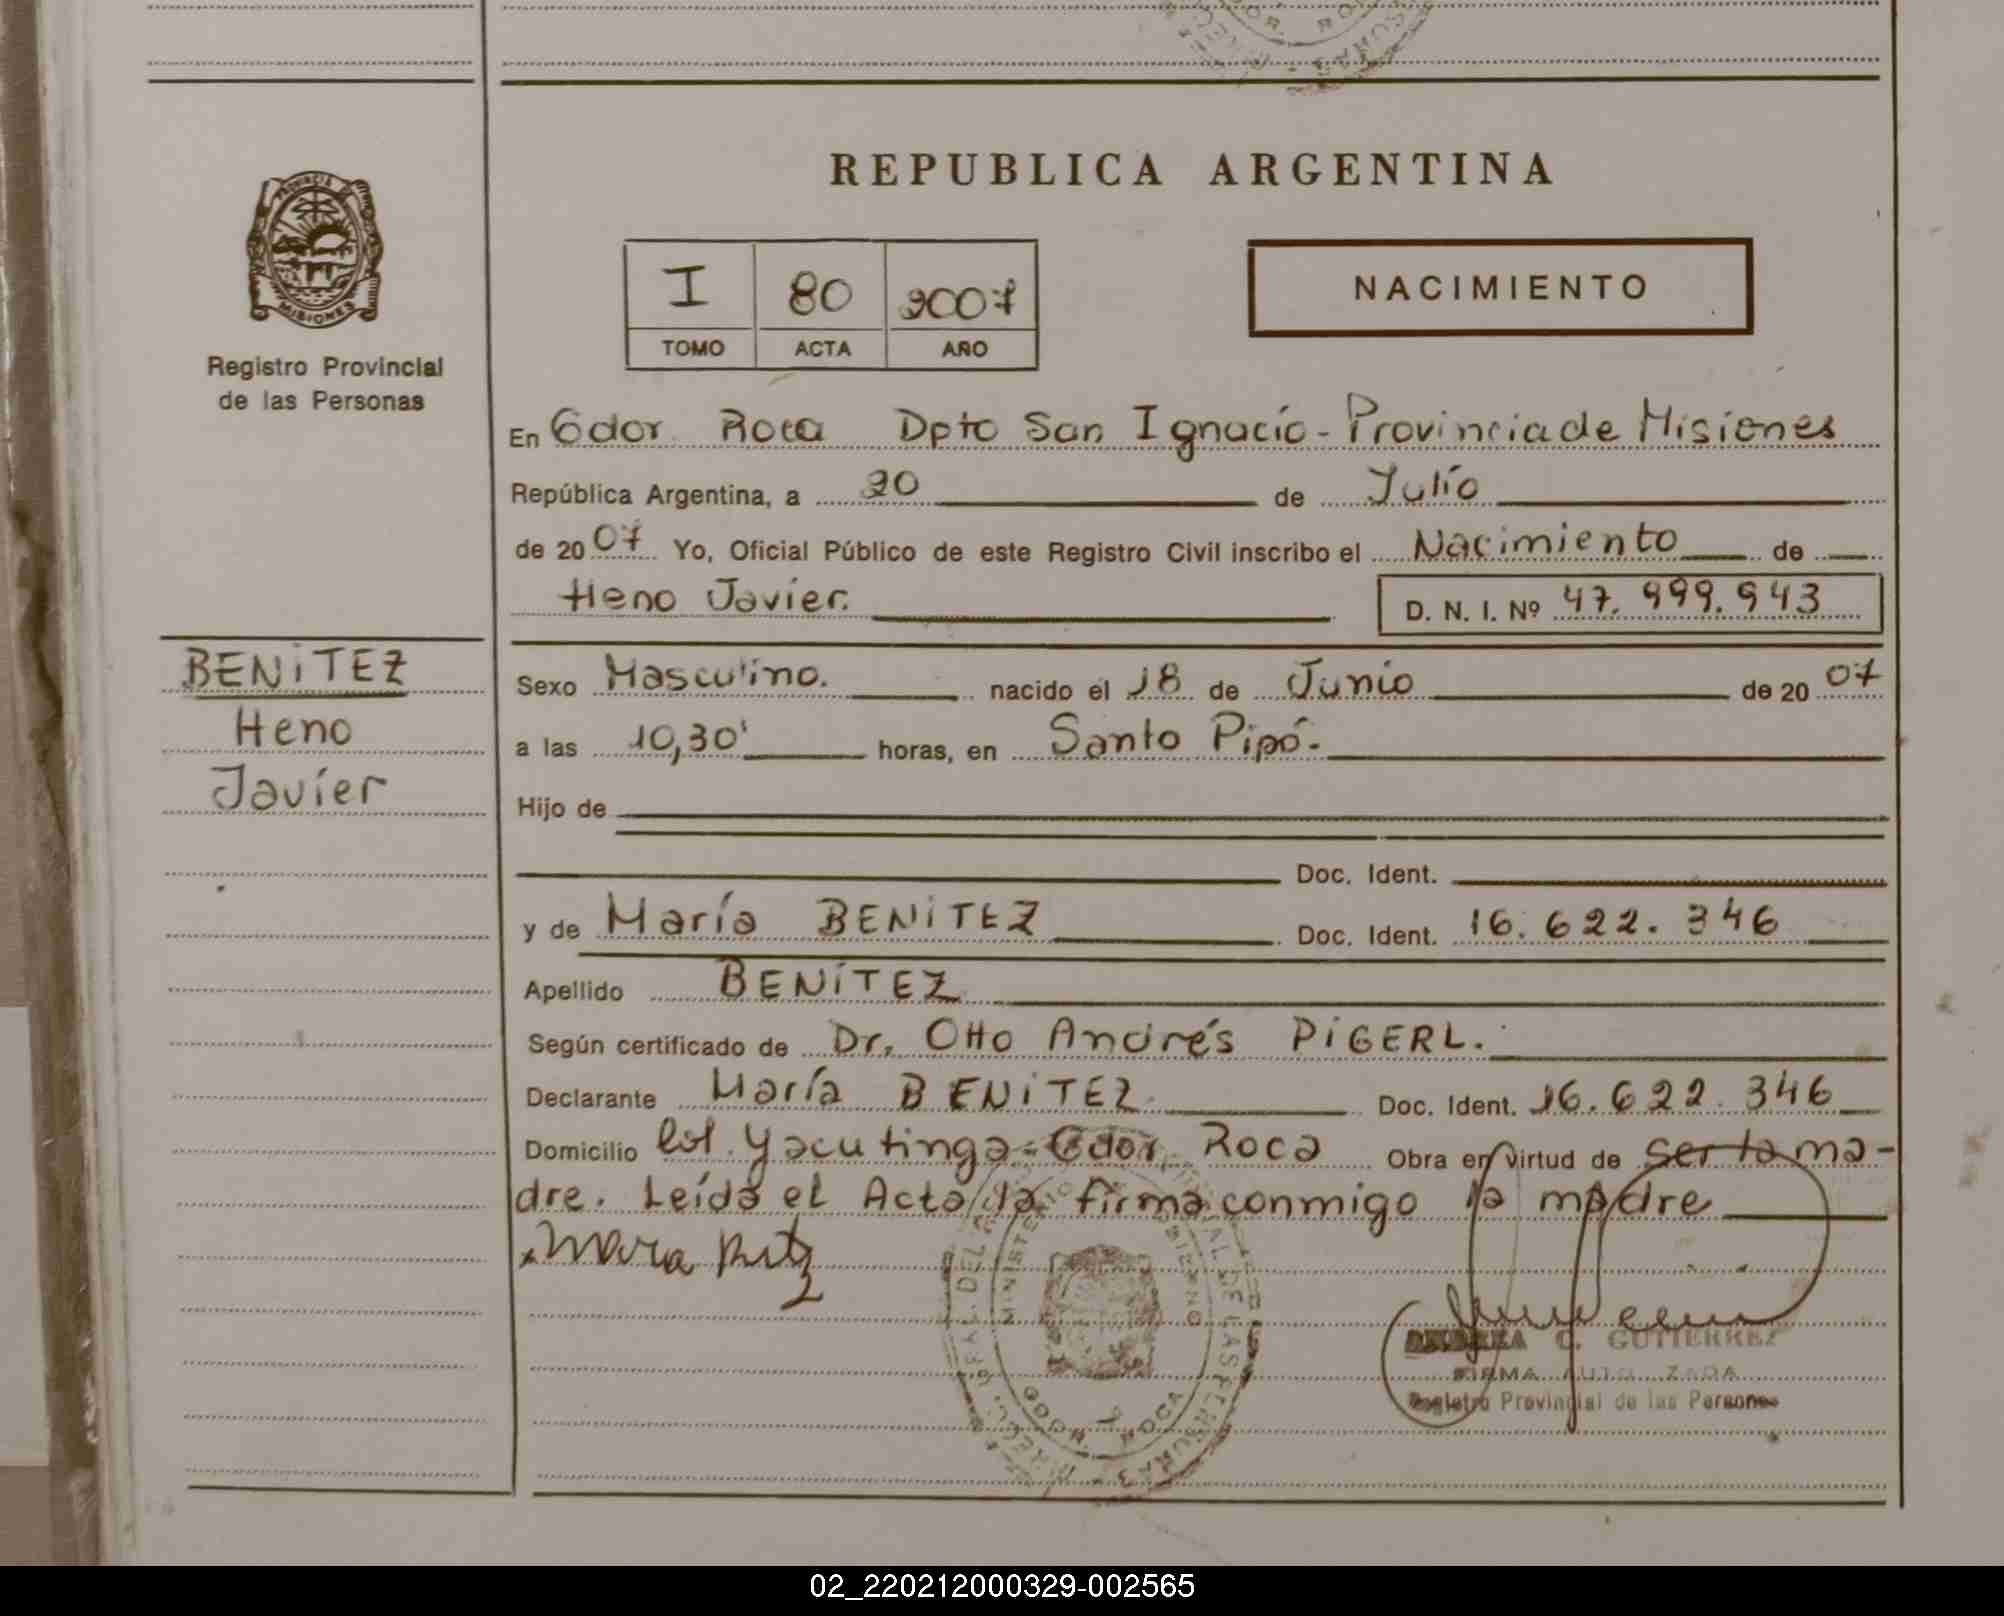 REPUBLICA ARGENTINA
PROVINCIA DE
MISIONES
Registro Provincial
de las Personas
I 80 2007
TOMO ACTA AÑO
NACIMIENTO
En Gdor Roca Dpto San Ignacio - Provincia de Misiones
República Argentina, a 20 de Julio
de 2007 Yo, Oficial Público de este Registro Civil inscribo el Nacimiento de
Heno Javier.
D. N. I. Nº 47.999.943
BENITEZ
Heno
Javier
Sexo Masculino. nacido el 18 de Junio de 2007
a las 10,30' horas, en Santo Pipó.
Hijo de
Doc. Ident.
y de María BENITEZ Doc. Ident. 16.622.346
Apellido BENITEZ
Según certificado de Dr. Otto Andrés PIGERL.
Declarante María BENITEZ Doc. Ident. 16.622.346
Domicilio Col. Yacutinga - Gdor Roca Obra en virtud de ser la ma-
dre. Leída el Acta la firma conmigo la madre
MINISTERIO DE GOBIERNO
GDOR. ROCA
ANDREA C. GUTIERREZ
FIRMA AUTORIZADA
Registro Provincial de las Personas
02_220212000329-002565